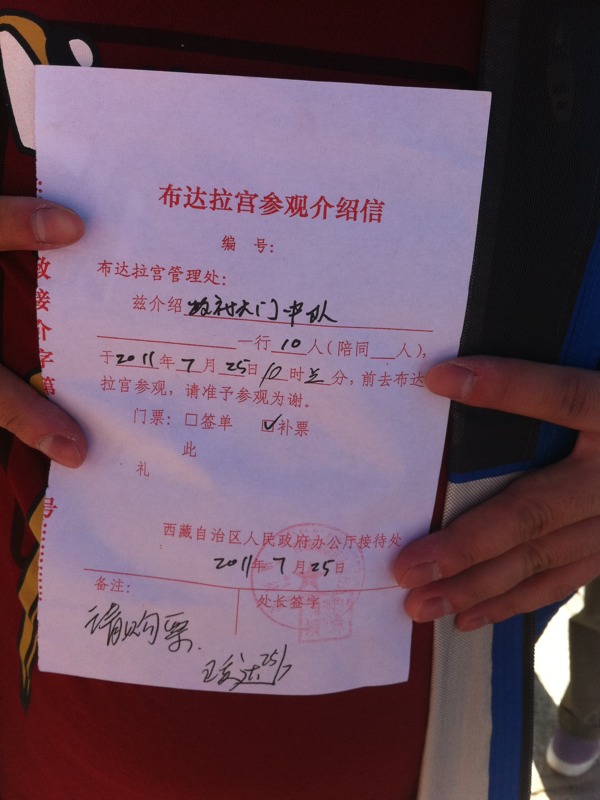 布达拉宫参观介绍信
编 号:
布达拉宫管理处:
兹介绍 天门 队
一行10人(陪同 人),
于2011年7月25日10时 分,前去布达
拉宫参观,请准予参观为谢。
门票:□签单 ☑补票
此
礼
西藏自治区人民政府办公厅接待处
2011年7月25日
备注:
处长签字
请购票.
25/7
政接介字第
号